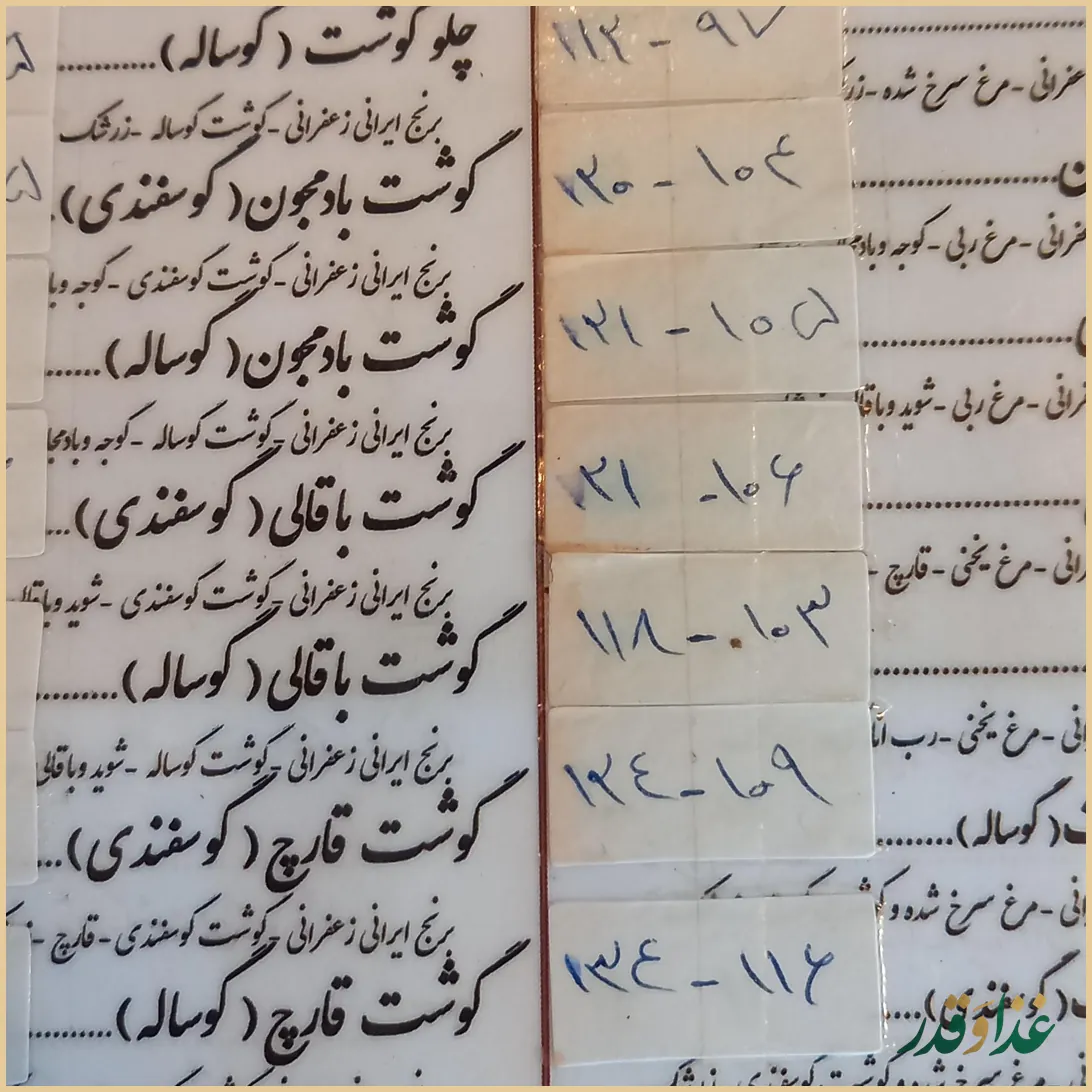 چلو گوشت ( گوساله)............
برنج ایرانی زعفرانی -گوشت گوساله -زرشک
گوشت بادمجون( گوسفندی).
برنج ایرانی زعفرانی -گوشت گوسفندی -گوجه وبا
گوشت بادمجون( گوساله).......
برنج ایرانی زعفرانی -گوشت گوساله -گوجه وبادمجا
گوشت باقالی ( گوسفندی)...
برنج ایرانی زعفرانی -گوشت گوسفندی -شوید وباقال
گوشت باقالی ( گوساله).........
برنج ایرانی زعفرانی -گوشت گوساله -شوید وباقالی
گوشت قارچ ( گوسفندی)...
برنج ایرانی زعفرانی -گوشت گوسفندی -قارچ -
گوشت قارچ ( گوساله)..........
۱۱۲ - ۹۷
۱۲۰ - ۱۰۴
۱۲۱ - ۱۰۵
۱۲۱ - ۱۰۶
۱۱۸ - ۱۰۳
۱۲۴ - ۱۰۹
۱۳۴ - ۱۱۶
عفرانی -مرغ سرخ شده -زر
فرانی -مرغ ربی -گوجه وباد
رانی -مرغ ربی -شوید وباقا
رانی -مرغ یخنی -قارچ -
انی -مرغ یخنی -رب انا
( گوساله).........
انی -مرغ سرخ شده و
( گوسفندی)....
غذا و قدر